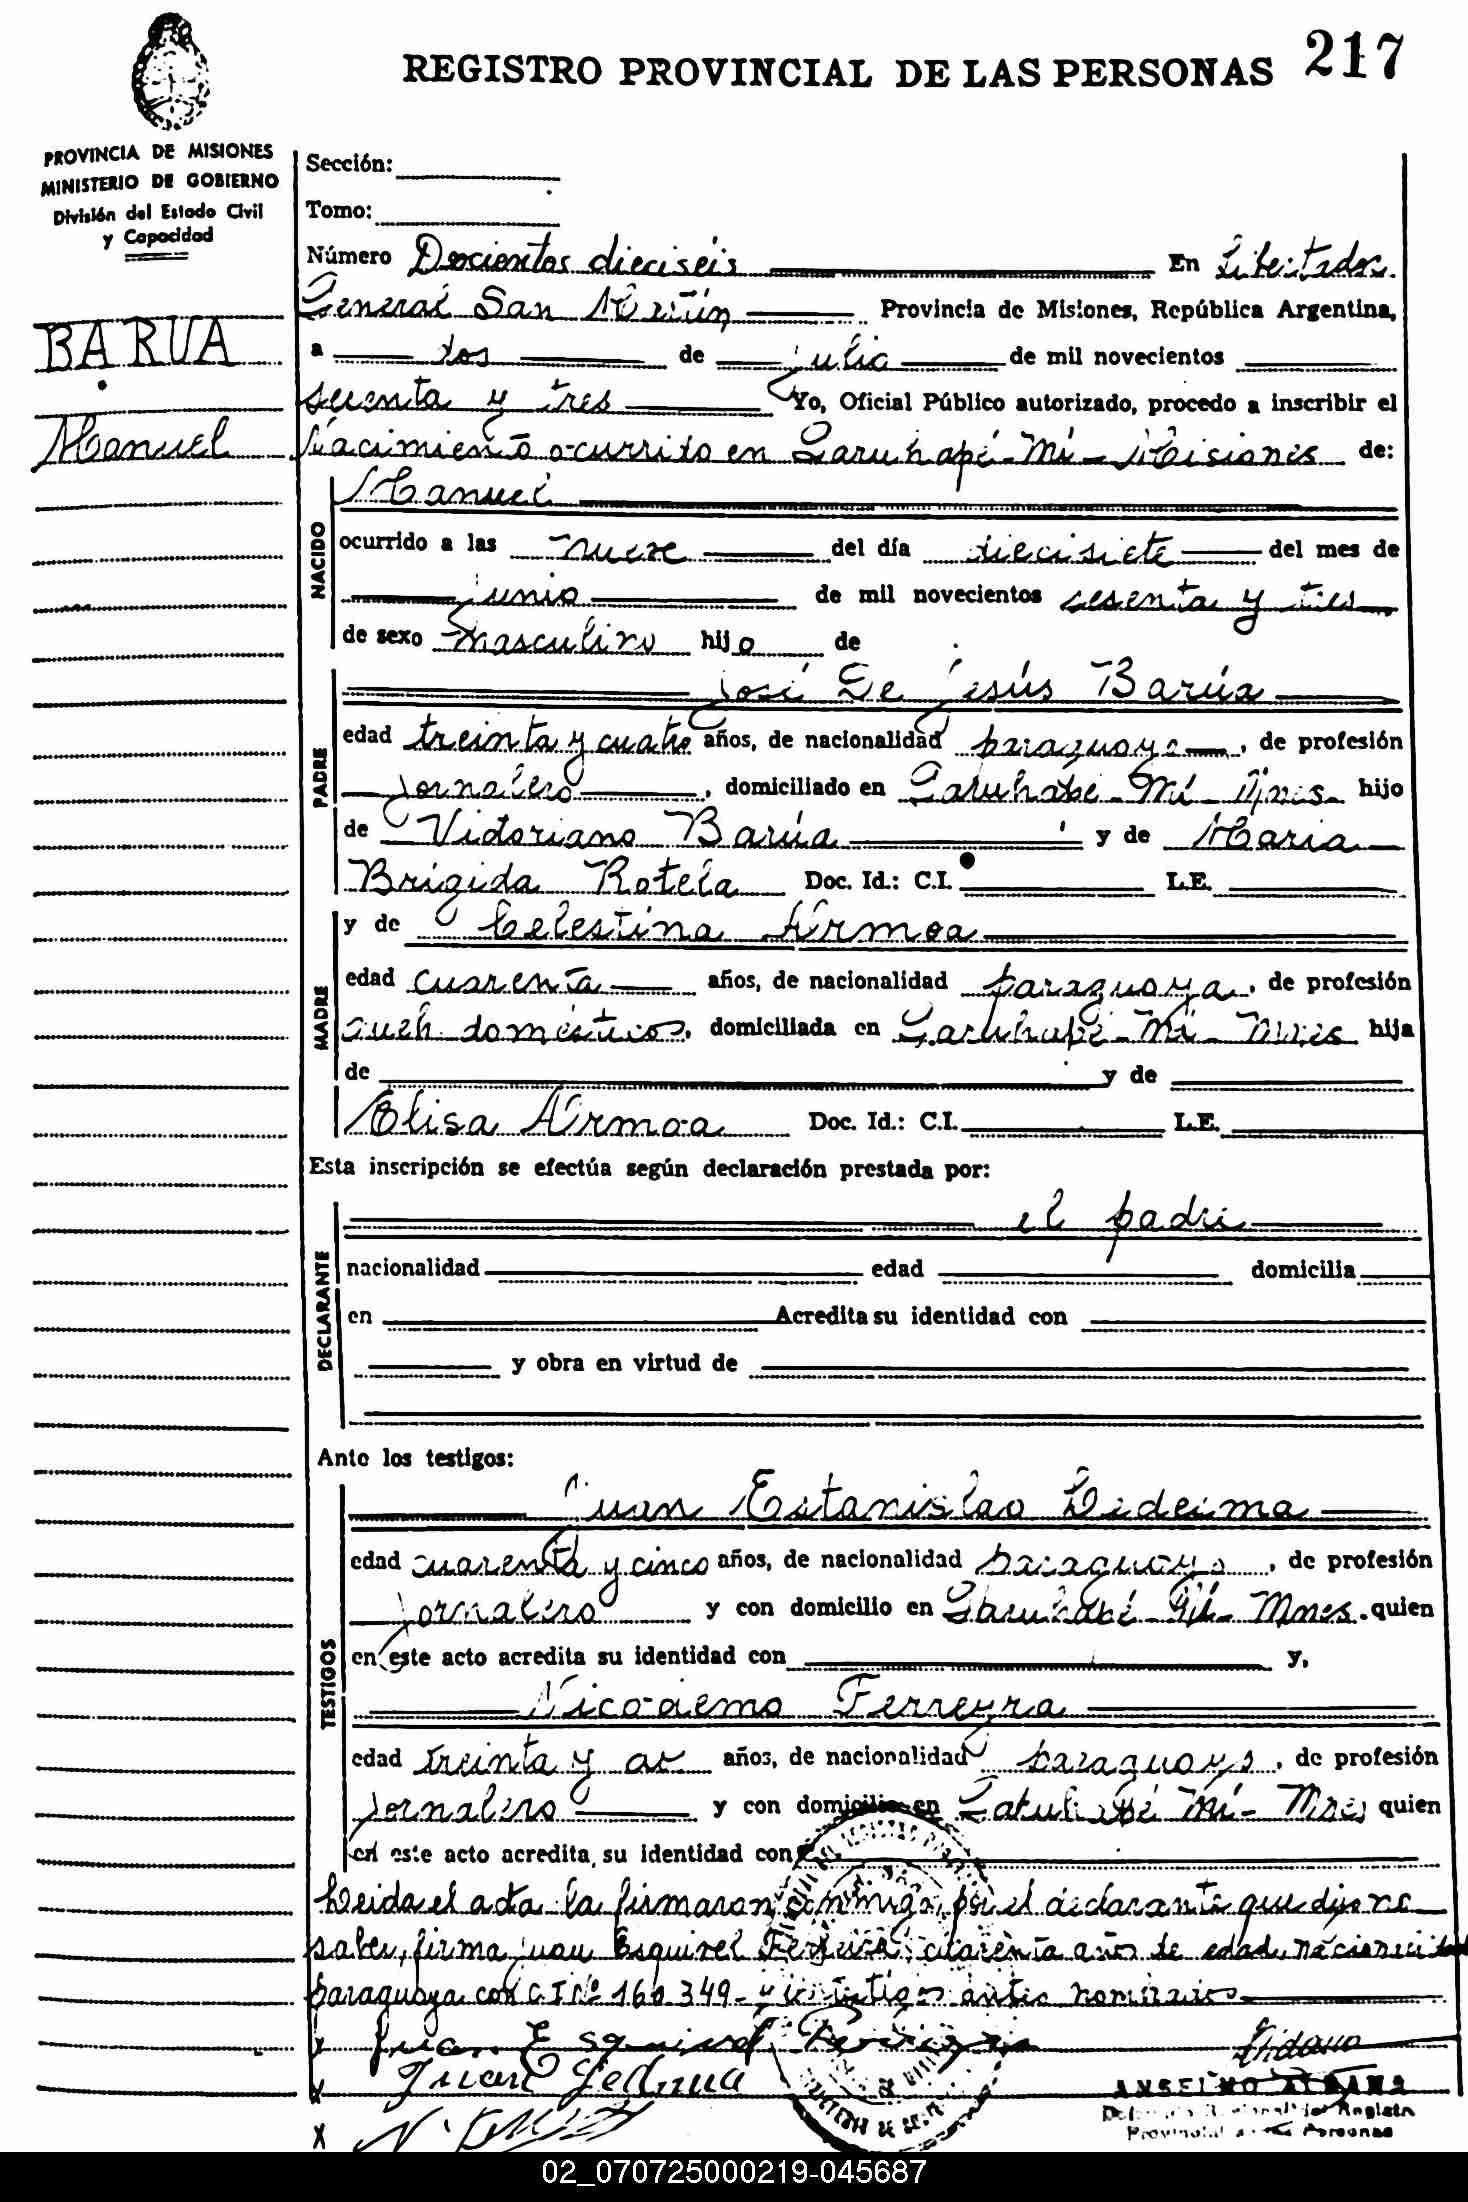 REGISTRO PROVINCIAL DE LAS PERSONAS 217
PROVINCIA DE MISIONES
MINISTERIO DE GOBIERNO
División del Estado Civil
y Capacidad
BARUA
Manuel
Sección:
Tomo:
Número Doscientos dieciséis En Libertador
General San Martín Provincia de Misiones, República Argentina,
a dos de julio de mil novecientos
sesenta y tres Yo, Oficial Público autorizado, procedo a inscribir el
Nacimiento ocurrido en Garuhapé-Mí-Misiones de:
NACIDO
Manuel
ocurrido a las nueve del día diecisiete del mes de
junio de mil novecientos sesenta y tres
de sexo masculino hijo de
PADRE
José De Jesús Barúa
edad treinta y cuatro años, de nacionalidad paraguaya, de profesión
jornalero, domiciliado en Garuhapé-Mí-Mnes- hijo
de Victoriano Barúa y de Maria
Brígida Rotela Doc. Id.: C.I. L.E.
MADRE
y de Celestina Armoa
edad cuarenta años, de nacionalidad paraguaya, de profesión
queh. domésticos, domiciliada en Garuhapé-Mí-Mnes hija
de y de
Elisa Armoa Doc. Id.: C.I. L.E.
Esta inscripción se efectúa según declaración prestada por:
DECLARANTE
el padre
nacionalidad edad domicilia
en Acredita su identidad con
y obra en virtud de
Ante los testigos:
TESTIGOS
Juan Estanislao Ledesma
edad cuarenta y cinco años, de nacionalidad paraguaya, de profesión
jornalero y con domicilio en Garuhapé-Mí-Mnes. quien
en este acto acredita su identidad con y,
Nicodemo Ferreyra
edad treinta y años, de nacionalidad paraguaya, de profesión
jornalero y con domicilio en Garuhapé Mí-Mnes quien
en este acto acredita su identidad con
Leida el acta la firmaron conmigo, por el declarante que dijo no
saber, firma Juan Esquivel cuarenta años de edad, nacionalidad
paraguaya con C.I Nº 160.349- y los testigos antes nominados
x Juan Esquivel
x Juan Ledesma
x
ANSELMO
Provincial de las Personas
02_070725000219-045687